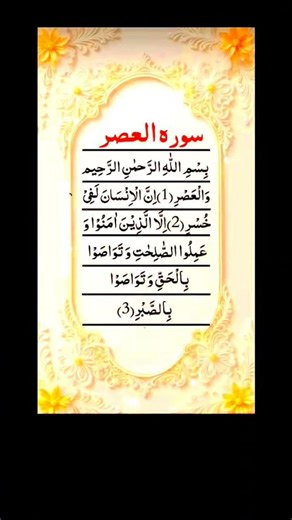 سورہ العصر
بِسْمِ اللّٰهِ الرَّحْمٰنِ الرَّحِیْمِ
وَالْعَصْرِ (1) اِنَّ الْاِنْسَانَ لَفِیْ
خُسْرٍ (2) اِلَّا الَّذِیْنَ اٰمَنُوْا وَ
عَمِلُوا الصّٰلِحٰتِ وَ تَوَاصَوْا
بِالْحَقِّ وَ تَوَاصَوْا
بِالصَّبْرِ (3)